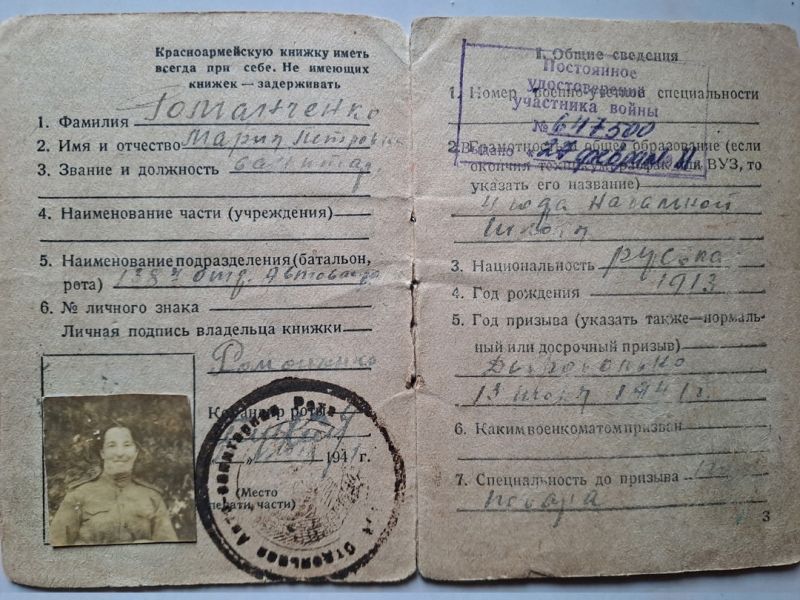 Красноармейскую книжку иметь
всегда при себе. Не имеющих
книжек — задерживать
1. Фамилия Романченко
2. Имя и отчество Мария Петровна
3. Звание и должность санитар
4. Наименование части (учреждения)
5. Наименование подразделения (батальон,
рота) отд.
6. № личного знака
Личная подпись владельца книжки
Командир роты
1941 г.
(Место
печати, части)
1. Общие сведения
Постоянное
удостоверение
участника войны
№ 647500
1. Номер военно-учетной специальности
2. Грамотность и общее образование (если
окончил ВУЗ, то
указать его название)
4 года начальной
школы
3. Национальность русская
4. Год рождения 1913
5. Год призыва (указать также—нормаль-
ный или досрочный призыв)
13 1941 г.
6. Каким военкоматом призван
7. Специальность до призыва
повара
3